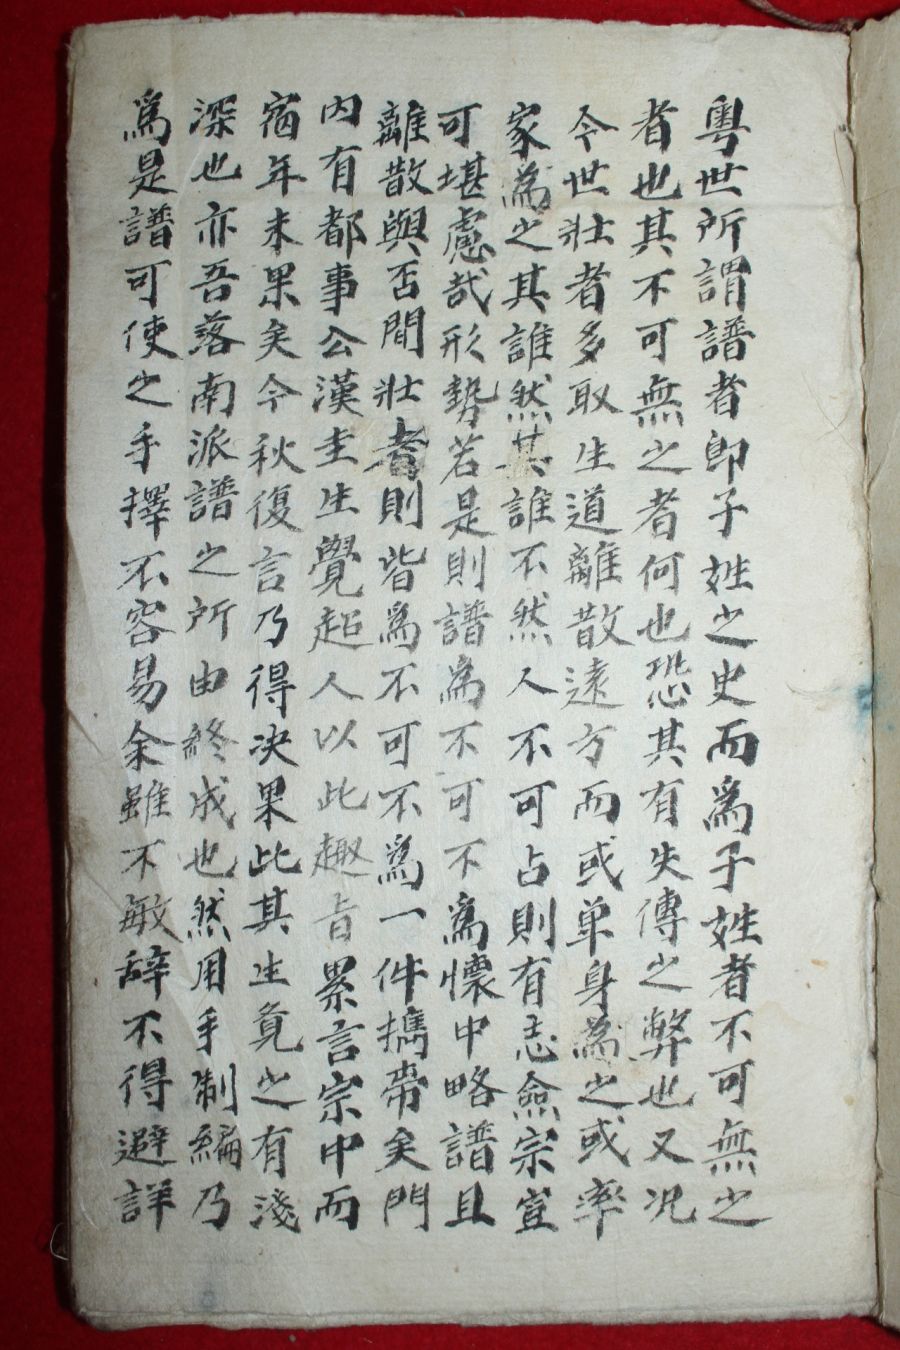 粤世所謂譜者即子姓之史而爲子姓者不可無之
者也其不可無之者何也恐其有失傳之弊也又况
今世壯者多取生道離散遠方而或単身為之或率
家為之其誰然其誰不然人不可占則有志僉宗豈
可堪慮哉形勢若是則譜為不可不爲懷中略譜且
離散與否間壯者則皆爲不可不爲一件攜帶矣門
内有都事公漢圭生覺超人以此趣旨累言宗中而
宿年未果矣今秋復言乃得决果此其生覓之有淺
深也亦吾落南派譜之所由終成也然用手制編乃
爲是譜可使之手擇不容易余雖不敏辞不得避詳